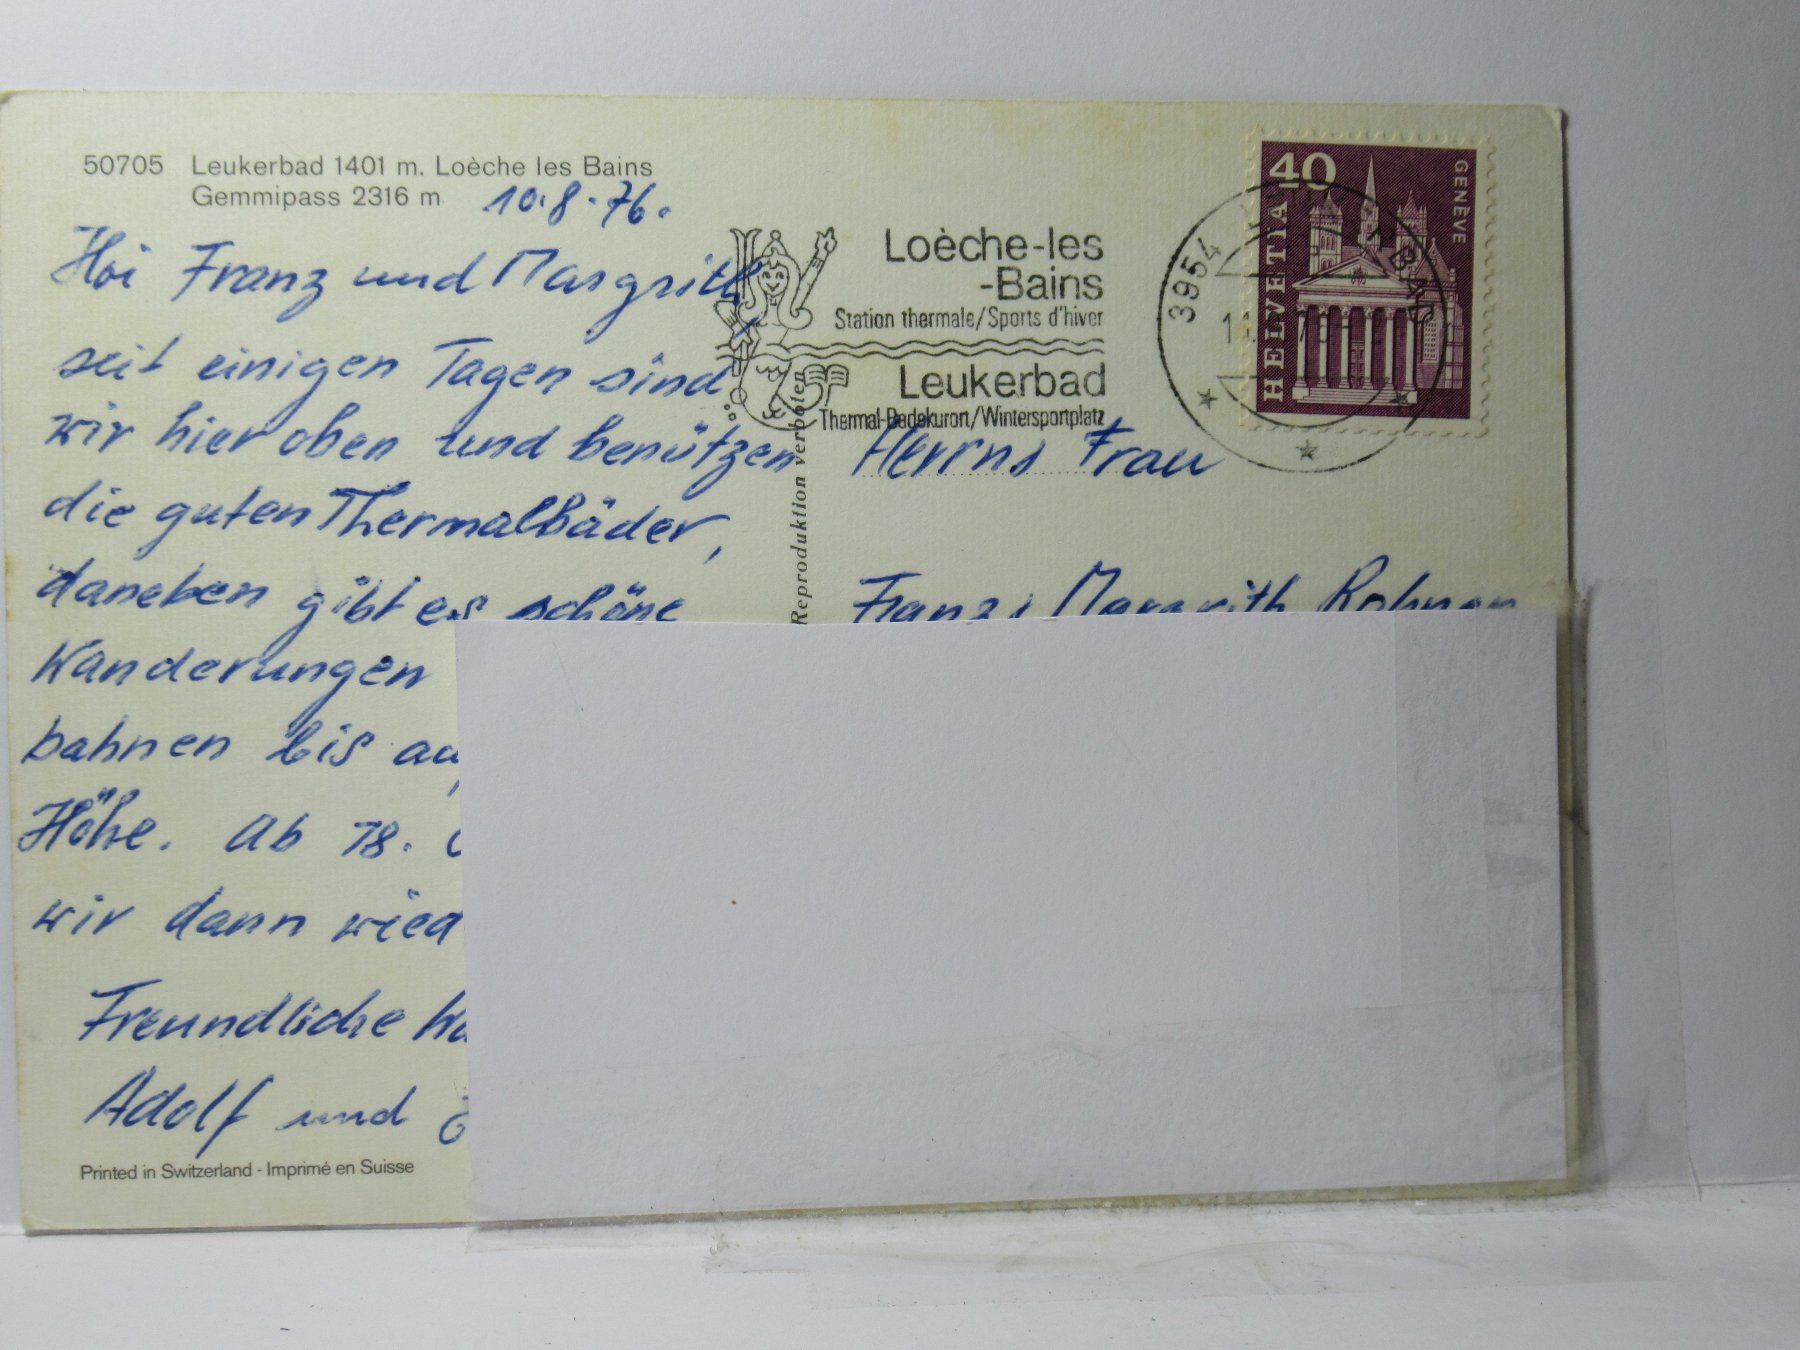 50705 Leukerbad 1401 m. Loèche les Bains
Gemmipass 2316 m
10.8.76.
Hoi Franz und Margrith
seit einigen Tagen sind
wir hier oben und benützen
die guten Thermalbäder,
daneben gibt es schöne
Wanderungen
bahnen bis
Höhe. Ab 18.
wir dann
Freundliche
Adolf und
Printed in Switzerland - Imprimé en Suisse
Loèche-les
-Bains
Station thermale/Sports d'hiver
Leukerbad
Thermal-Badekurort/Wintersportplatz
Reproduktion verboten
40
HELVETIA
GENÈVE
3954
Frau
Franz Margrith